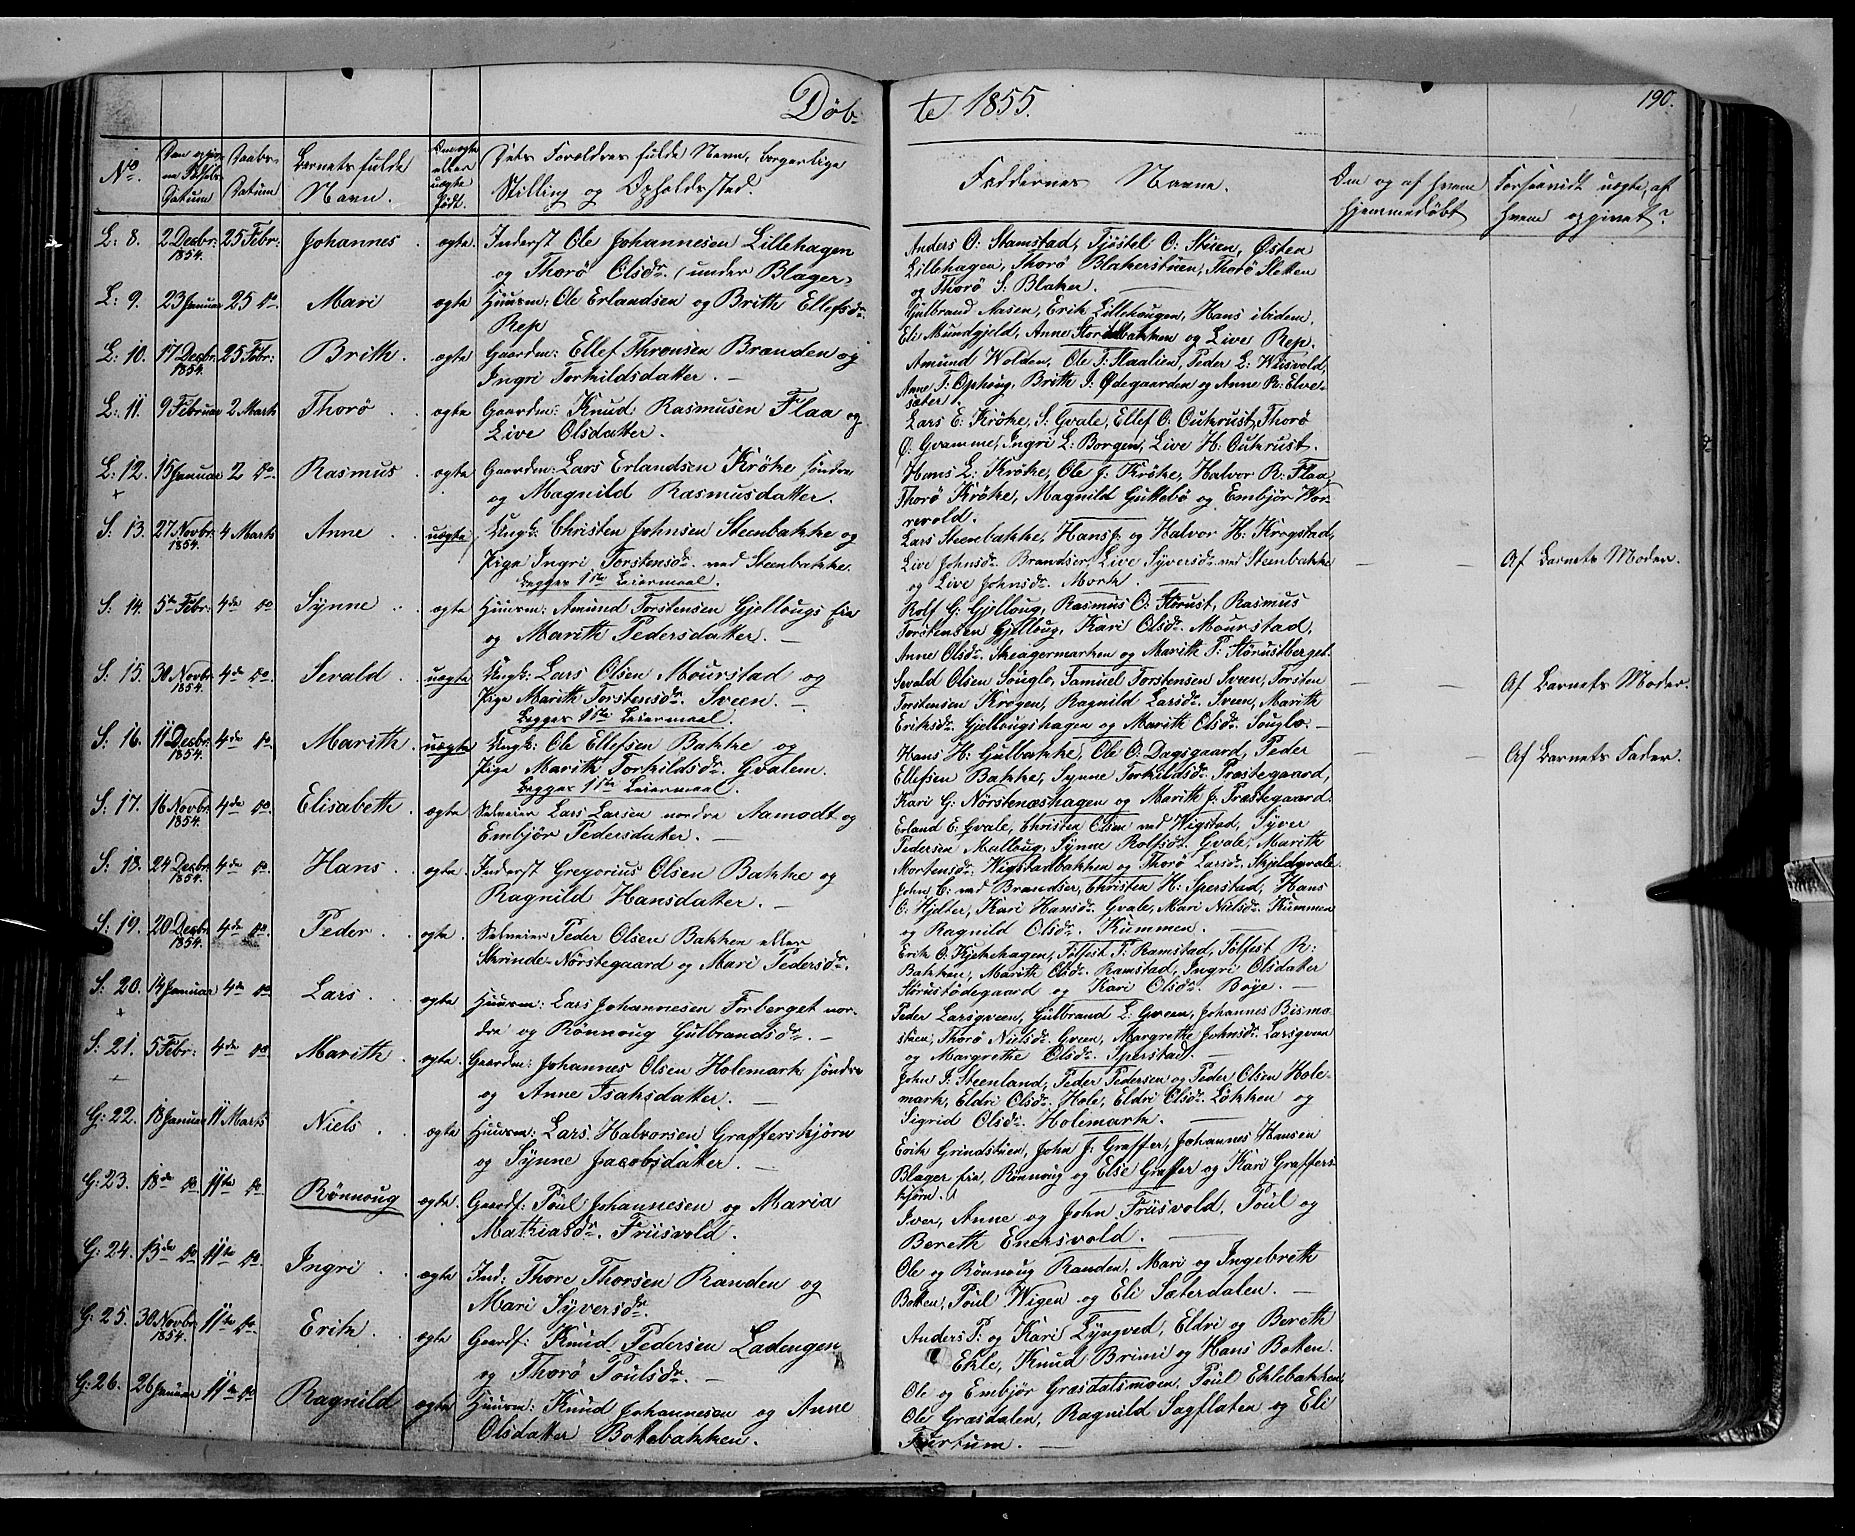 Døb-
te 1855.
190.
No.
Dens og Fødsels Datum
Daabs-Datum
Barnets fulde
Navn.
Om ægte
eller
uægte
født.
Dets Forældres fulde Navn, borgerlige
Stilling og Opholdssted.
Faddernes Navne.
Om og af hvem
hjemmedøbt
Forsaavidt uægte, af
hvem opgivet?
L: 8. 2 Decbr. 1854. 25 Febr: Johannes. ægte Inderst Ole Johannesen Lillehagen
og Thorø Olsdr. (under Blager)
Anders O: Stamstad, Tjøstel O: Stuen, Østen
Lillehagen, Thorø Blakerstuen, Thorø Sletten
og Thorø S: Blaker.
L: 9. 23 Januar 25 do Mari ægte Huusm: Ole Erlandsen og Brith Ellefsdr.
Rep
Gulbrand Aasen, Erik Lillehougen, Hans ibidem,
Eli Mundgjeld, Anne Storibakken og Live Rep.
L: 10. 17 Decbr. 1854. 25 Febr: Brith. ægte Gaardm: Ellef Thronsen Branden og
Ingri Torkildsdatter. —
Amund Volden, Ole T: Slaalien, Peder L: Wiisvold,
Anne T: Ophoug, Brith J: Ødegaarden og Anne R: Elve-
sæter.
L: 11. 9 Februar 2 Marts Thorø. ægte Gaardm: Knud Rasmusen Flaa og
Live Olsdatter.
Lars E: Krøke, S: Gvale, Ellef O: Outkrust, Thorø
O: Gvamme, Ingri L: Borgen, Live H: Outkrust.
L: 12. 15 Januar 2 do Rasmus. ægte Gaardm: Lars Erlandsen Krøke søndre
og Magnild Rasmusdatter.
Hans L: Krøke, Ole J: Krøke, Halvor R: Flaa,
Thorø Krøke, Magnild Guttebø og Embjør Vor-
revold.
S: 13. 27 Novbr. 1854. 4 Marts Anne. uægte Ungk: Christen Johnsen Steenbakke og
Pige Ingri Torstensdr. ved Steenbakke.
Begges 1ste Leiermaal.
Lars Steenbakke, Hans J: og Halvor H: Krogstad,
Live Johnsdr. Brandser, Live Syversdr. ved Steenbakke
og Live Johnsdr. Mork.
— — Af Barnets Moder.
S: 14. 5te Febr: 4de do Synne. ægte Huusm: Amund Torstensen Gjellougs Eie
og Marith Pedersdatter. —
Rolf G: Gjelloug, Rasmus O: Størust, Rasmus
Torstensen Gjelloug, Kari Olsdr. Mourstad,
Anne Olsdr. Skeagermarken og Marith P: Størustberget.
S: 15. 30 Novbr. 1854. 4de do. Sevald. uægte Ungk: Lars Olsen Mourstad og
Pige Marith Torstensdr. Sveen. —
Begges 1ste Leiermaal.
Sevald Olsen Souglo, Samuel Torstensen Sveen, Torsten
Torstensen Krogen, Ragnild Larsdr. Sveen, Marith
Eriksdr. Gjellougshagen og Marith Olsdr. Souglo. —
— — Af Barnets Moder.
S: 16. 11 Decbr. 1854. 4de do. Marith. uægte Ungk: Ole Ellefsen Bakke og
Pige Marith Torkildsdr. Gvalem.
Begges 1ste Leiermaal.
Hans H: Gulbakke, Ole O: Dagsgaard, Peder
Ellefsen Bakke, Synne Torkildsdr. Præstegaard,
Kari G: Nørstenæshagen og Marith J: Præstegaard.
— — Af Barnets Fader.
S: 17. 16 Novbr. 1854. 4de do. Elisabeth. ægte Selveier Lars Larsen nordre Aamodt og
Embjør Pedersdatter. —
Erland E: Gvale, Christen Olsen ved Wigstad, Syver
Pedersen Melloug, Synne Rolfsdr. Gvale, Marith
Mortensdr. Wigstadbakken og Thorø Larsdr. Skjeldgvale.
S: 18. 24 Decbr. 1854. 4de do. Hans. ægte Inderst Gregorius Olsen Bakke og
Ragnild Hansdatter. —
John E: ved Brandser, Christen H: Sperstad, Hans
O: Hjelter, Kari Hansdr. Gvale, Mari Nielsdr. Kummen
og Ragnild Olsdr. Kummen.
S: 19. 20 Decbr. 1854. 4de do. Peder. ægte. Selveier Peder Olsen Bakken eller
Skrinde-Nørstegaard og Mari Pedersdr.
Erik O: Kjekehagen, Tølfest T: Ramstad, Tølfest R:
Bakken, Marith Olsdr. Ramstad, Ingri Olsdatter
Størustødegaard og Kari Olsdr. Bøye. —
S: 20. 14 Januar 4de do Lars. ægte Huusm: Lars Johannesen Forberget nor-
dre og Rønnoug Gulbrandsdr. —
Peder Larsgveen, Gulbrand L: Gveen, Johannes Bismo-
stuen, Thorø Nielsdr. Gveen, Margrethe Johnsdr. Larsgveen
og Margrethe Olsdr. Sperstad. —
S: 21. 5 Febr: 4de do Marith. ægte. Gaardm: Johannes Olsen Holemark søndre
og Anne Isaksdatter. —
John J: Steenland, Peder Pedersen og Peder Olsen Hole-
mark, Eldri Olsdr. Hole, Eldri Olsdr. Løkken og
Sigrid Olsdr. Holemark. —
G: 22. 18 Januar 11 Marts Niels. ægte Huusm: Lars Halvorsen Grafferskjørn
og Synne Jacobsdatter. —
Erik Grindstuen, John J: Graffer, Johannes Hansen
Blager eie, Rønnoug og Else Graffer og Kari Graffers-
kjørn.
G: 23. 18de do 11te do Rønnoug ægte. Gaardf: Poul Johannesen og Maria
Mathiasdr. Friisvold.
Iver, Anne og John Friisvold, Poul og
Bereth Enersvold. —
G: 24. 13de do 11te do Ingri. ægte Ind: Thore Thorsen Randen og
Mari Syversdr.
Ole og Rønnoug Randen, Mari og Ingebreth
Botten, Poul Wigen og Eli Sæterdalen. —
G: 25. 30 Novbr. 1854. 11te do. Erik. ægte Gaardf: Knud Pedersen Ladengen
og Thorø Poulsdr. —
Anders P: og Kari Lyngved, Eldri og Bereth
Ekle, Knud Brimi og Hans Botten.
G: 26. 26 Januar 11te do Ragnild ægte Huusm: Knud Johannesen og Anne
Olsdatter Bottebakken.
Ole og Embjør Græsdalsmoen, Poul Eklebakken,
Ole Græsdalen, Ragnild Sagflaten og Eli
Furtum. —